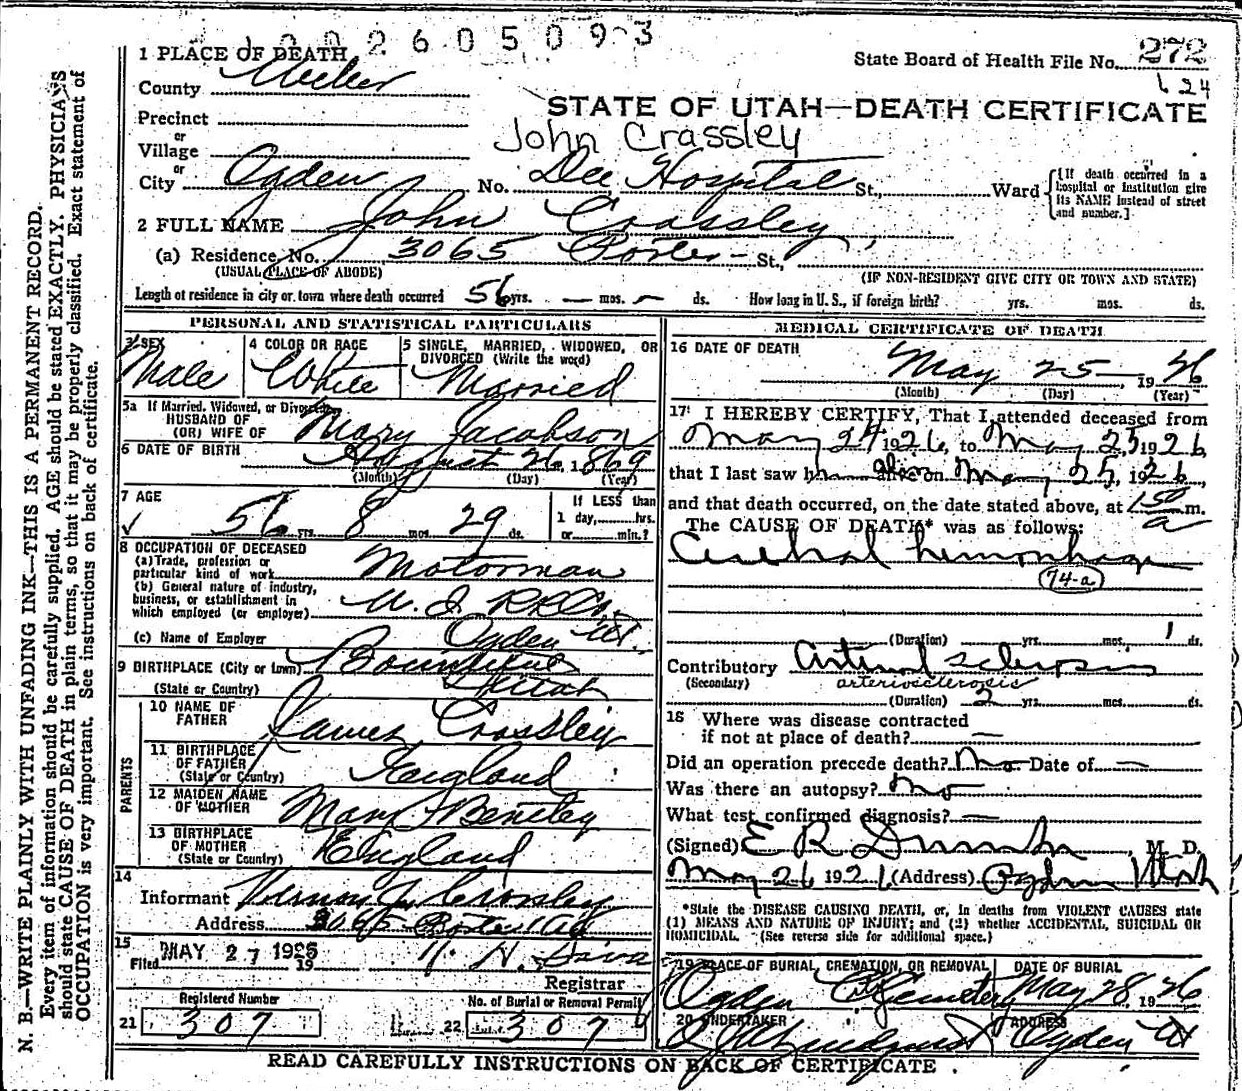 192605093
1 PLACE OF DEATH
State Board of Health File No. 272
624
County Weber
STATE OF UTAH—DEATH CERTIFICATE
Precinct
or
Village
John Crassley
or
City Ogden No. Dee Hospital St., Ward
[If death occurred in a hospital or institution give its NAME instead of street and number.]
2 FULL NAME John Crassley
(a) Residence, No. 3065 Porter St.,
(USUAL PLACE OF ABODE) (IF NON-RESIDENT GIVE CITY OR TOWN AND STATE)
Length of residence in city or town where death occurred 56 yrs. — mos. — ds. How long in U. S., if foreign birth? yrs. mos. ds.
PERSONAL AND STATISTICAL PARTICULARS
3 SEX Male
4 COLOR OR RACE White
5 SINGLE, MARRIED, WIDOWED, OR DIVORCED (Write the word) Married
5a If Married, Widowed, or Divorced
HUSBAND OF
(OR) WIFE OF Mary Jacobson
6 DATE OF BIRTH August 26, 1869
(Month) (Day) (Year)
7 AGE 56 yrs. 8 mos. 29 ds.
If LESS than
1 day, hrs.
or min.?
8 OCCUPATION OF DECEASED
(a) Trade, profession or
particular kind of work Motorman
(b) General nature of industry,
business, or establishment in
which employed (or employer) U. I. RR Co.
(c) Name of Employer Ogden Ut
9 BIRTHPLACE (City or town) Bountiful
(State or Country) Utah
PARENTS
10 NAME OF
FATHER James Crossley
11 BIRTHPLACE
OF FATHER
(State or Country) England
12 MAIDEN NAME
OF MOTHER Mary Bentley
13 BIRTHPLACE
OF MOTHER
(State or Country) England
14
Informant Vernon J. Crossley
Address 3065 Porter
15
Filed MAY 27 1926 19
Registrar
Registered Number
21 307
No. of Burial or Removal Permit
22 307
MEDICAL CERTIFICATE OF DEATH
16 DATE OF DEATH
May 25 — 1926
(Month) (Day) (Year)
17 I HEREBY CERTIFY, That I attended deceased from
May 24 1926, to May 25 1926,
that I last saw him alive on May 25, 1926,
and that death occurred, on the date stated above, at 1 50 a m.
The CAUSE OF DEATH* was as follows:
Cerebral hemorrhage
74-a
(Duration) yrs. mos. 1 ds.
Contributory Arterial sclerosis
(Secondary) arteriosclerosis
(Duration) 2 yrs. mos. ds.
18 Where was disease contracted
if not at place of death? —
Did an operation precede death? No Date of —
Was there an autopsy? No
What test confirmed diagnosis? —
(Signed) E R Dumke, M. D.
May 26 1926 (Address) Ogden Utah
*State the DISEASE CAUSING DEATH, or, in deaths from VIOLENT CAUSES state
(1) MEANS AND NATURE OF INJURY; and (2) whether ACCIDENTAL, SUICIDAL OR
HOMICIDAL. (See reverse side for additional space.)
19 PLACE OF BURIAL, CREMATION, OR REMOVAL
Ogden City Cemetery
DATE OF BURIAL
May 28, 1926
20 UNDERTAKER
ADDRESS
Ogden Ut
READ CAREFULLY INSTRUCTIONS ON BACK OF CERTIFICATE.
N. B.—WRITE PLAINLY WITH UNFADING INK—THIS IS A PERMANENT RECORD.
Every item of information should be carefully supplied. AGE should be stated EXACTLY. PHYSICIANS
should state CAUSE OF DEATH in plain terms, so that it may be properly classified. Exact statement of
OCCUPATION is very important. See instructions on back of certificate.